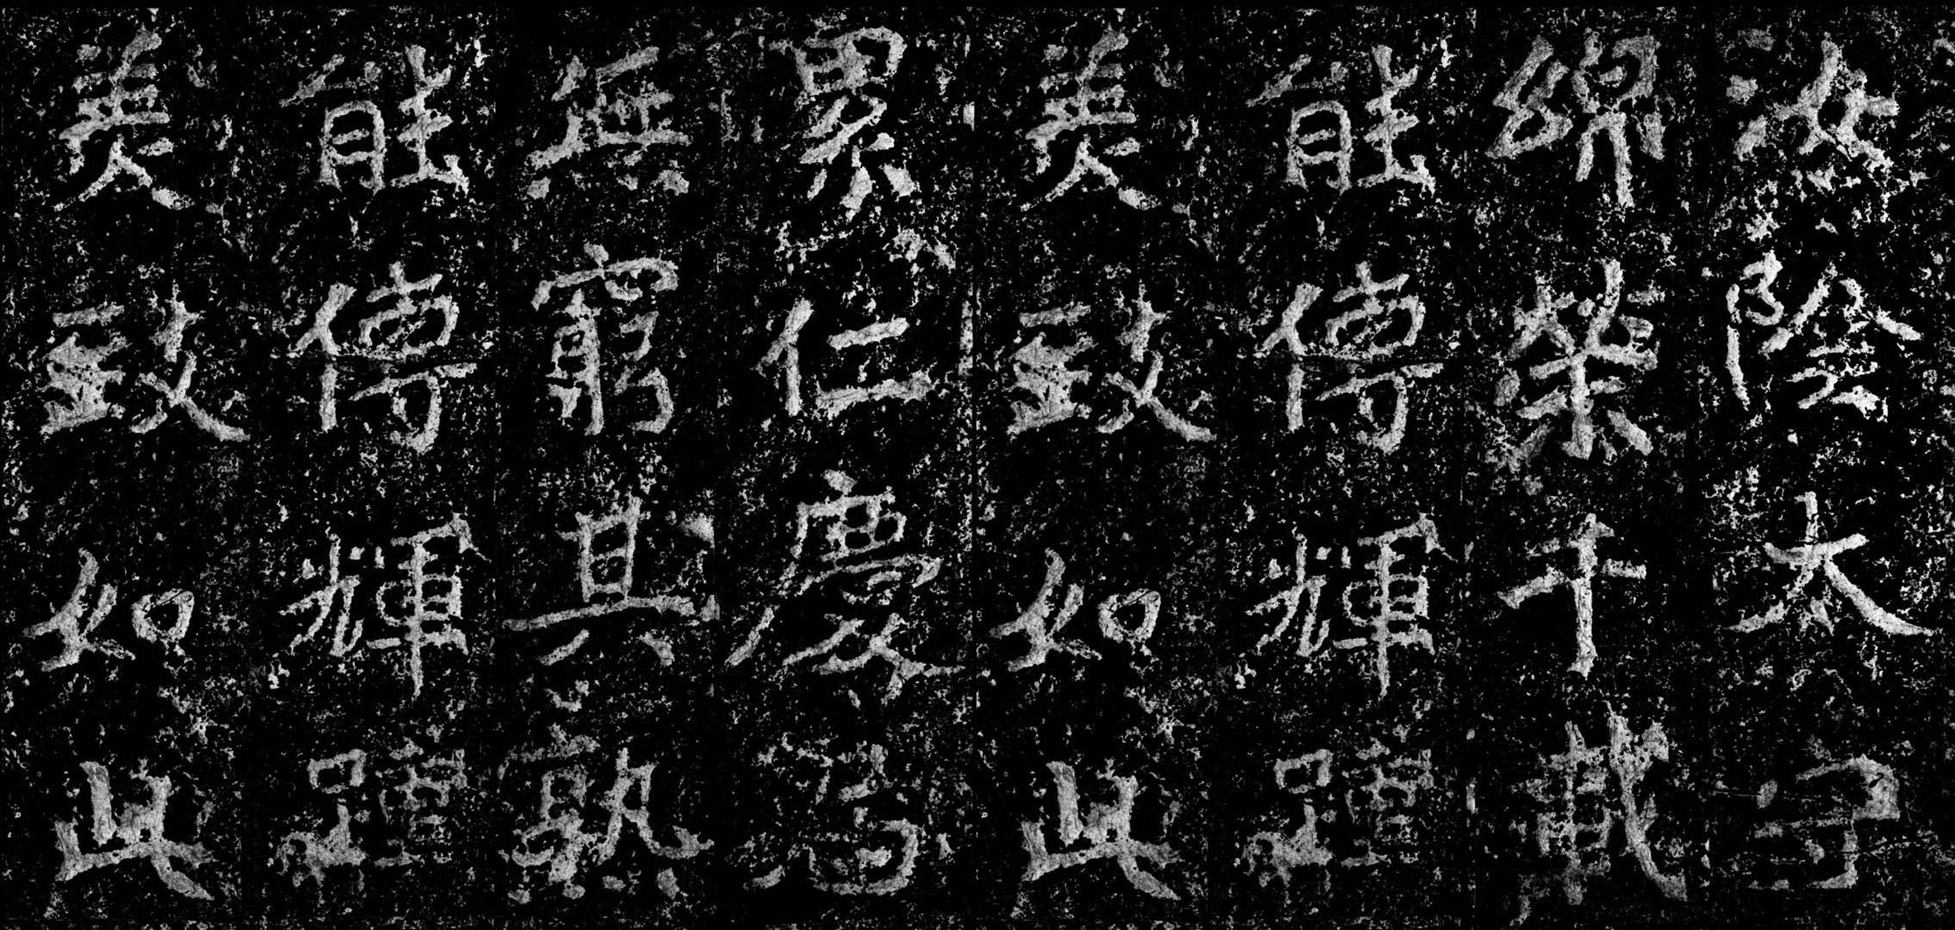 汝陰太守
綿榮千載
能傳輝踵
美致如此
累仁慶
無窮其熟
能傳輝踵
美致如此